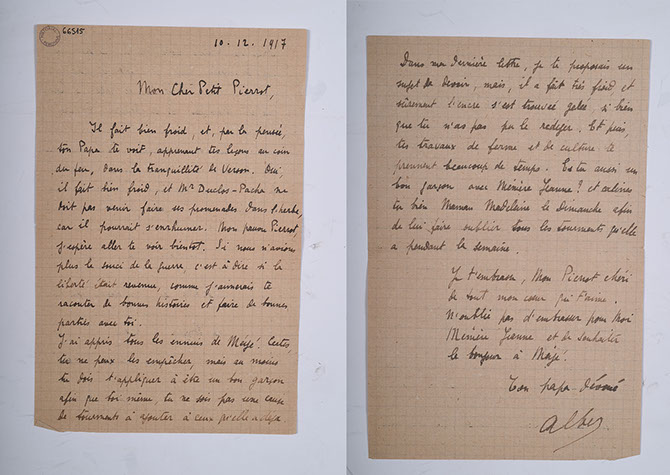 66515
10.12.1917
Mon Cher Petit Pierrot,
Il fait bien froid, et, par la pensée,
ton Papa te voit, apprenant tes leçons au coin
du feu, dans la tranquillité de Verson. Oui,
il fait bien froid, et Mr Duclos-Pacha ne
doit pas venir faire ses promenades dans l'herbe,
car il pourrait s'enrhumer. Mon pauvre Pierrot,
j'espère aller te voir bientôt. Si nous n'avions
plus le souci de la guerre, c'est à dire si la
liberté était revenue, comme j'aimerais te
raconter de bonnes histoires et faire de bonnes
parties avec toi.
J'ai appris tous les ennuis de Mayé. Certes,
tu ne peux les empêcher, mais au moins
tu dois t'appliquer à être un bon garçon
afin que toi même, tu ne sois pas une cause
de tourments à ajouter à ceux qu'elle a déjà
Dans ma dernière lettre, je te proposais un
sujet de devoir, mais, il a fait très froid et
sûrement l'encre s'est trouvée gelée, si bien
que tu n'as pas pu le rediger. Et puis,
tes travaux de ferme et de culture te
prennent beaucoup de temps. Es tu aussi un
bon garçon avec Mémère Jeanne? et
tu bien Maman Madeleine le Dimanche afin
de lui faire oublier tous les tourments qu'elle
a pendant la semaine.
Je t'embrasse, Mon Pierrot chéri
de tout mon cœur qui t'aime.
N'oublie pas d'embrasser pour Moi
Mémère Jeanne et de souhaiter
le bonjour à Mayé.
Ton papa dévoué
Albert